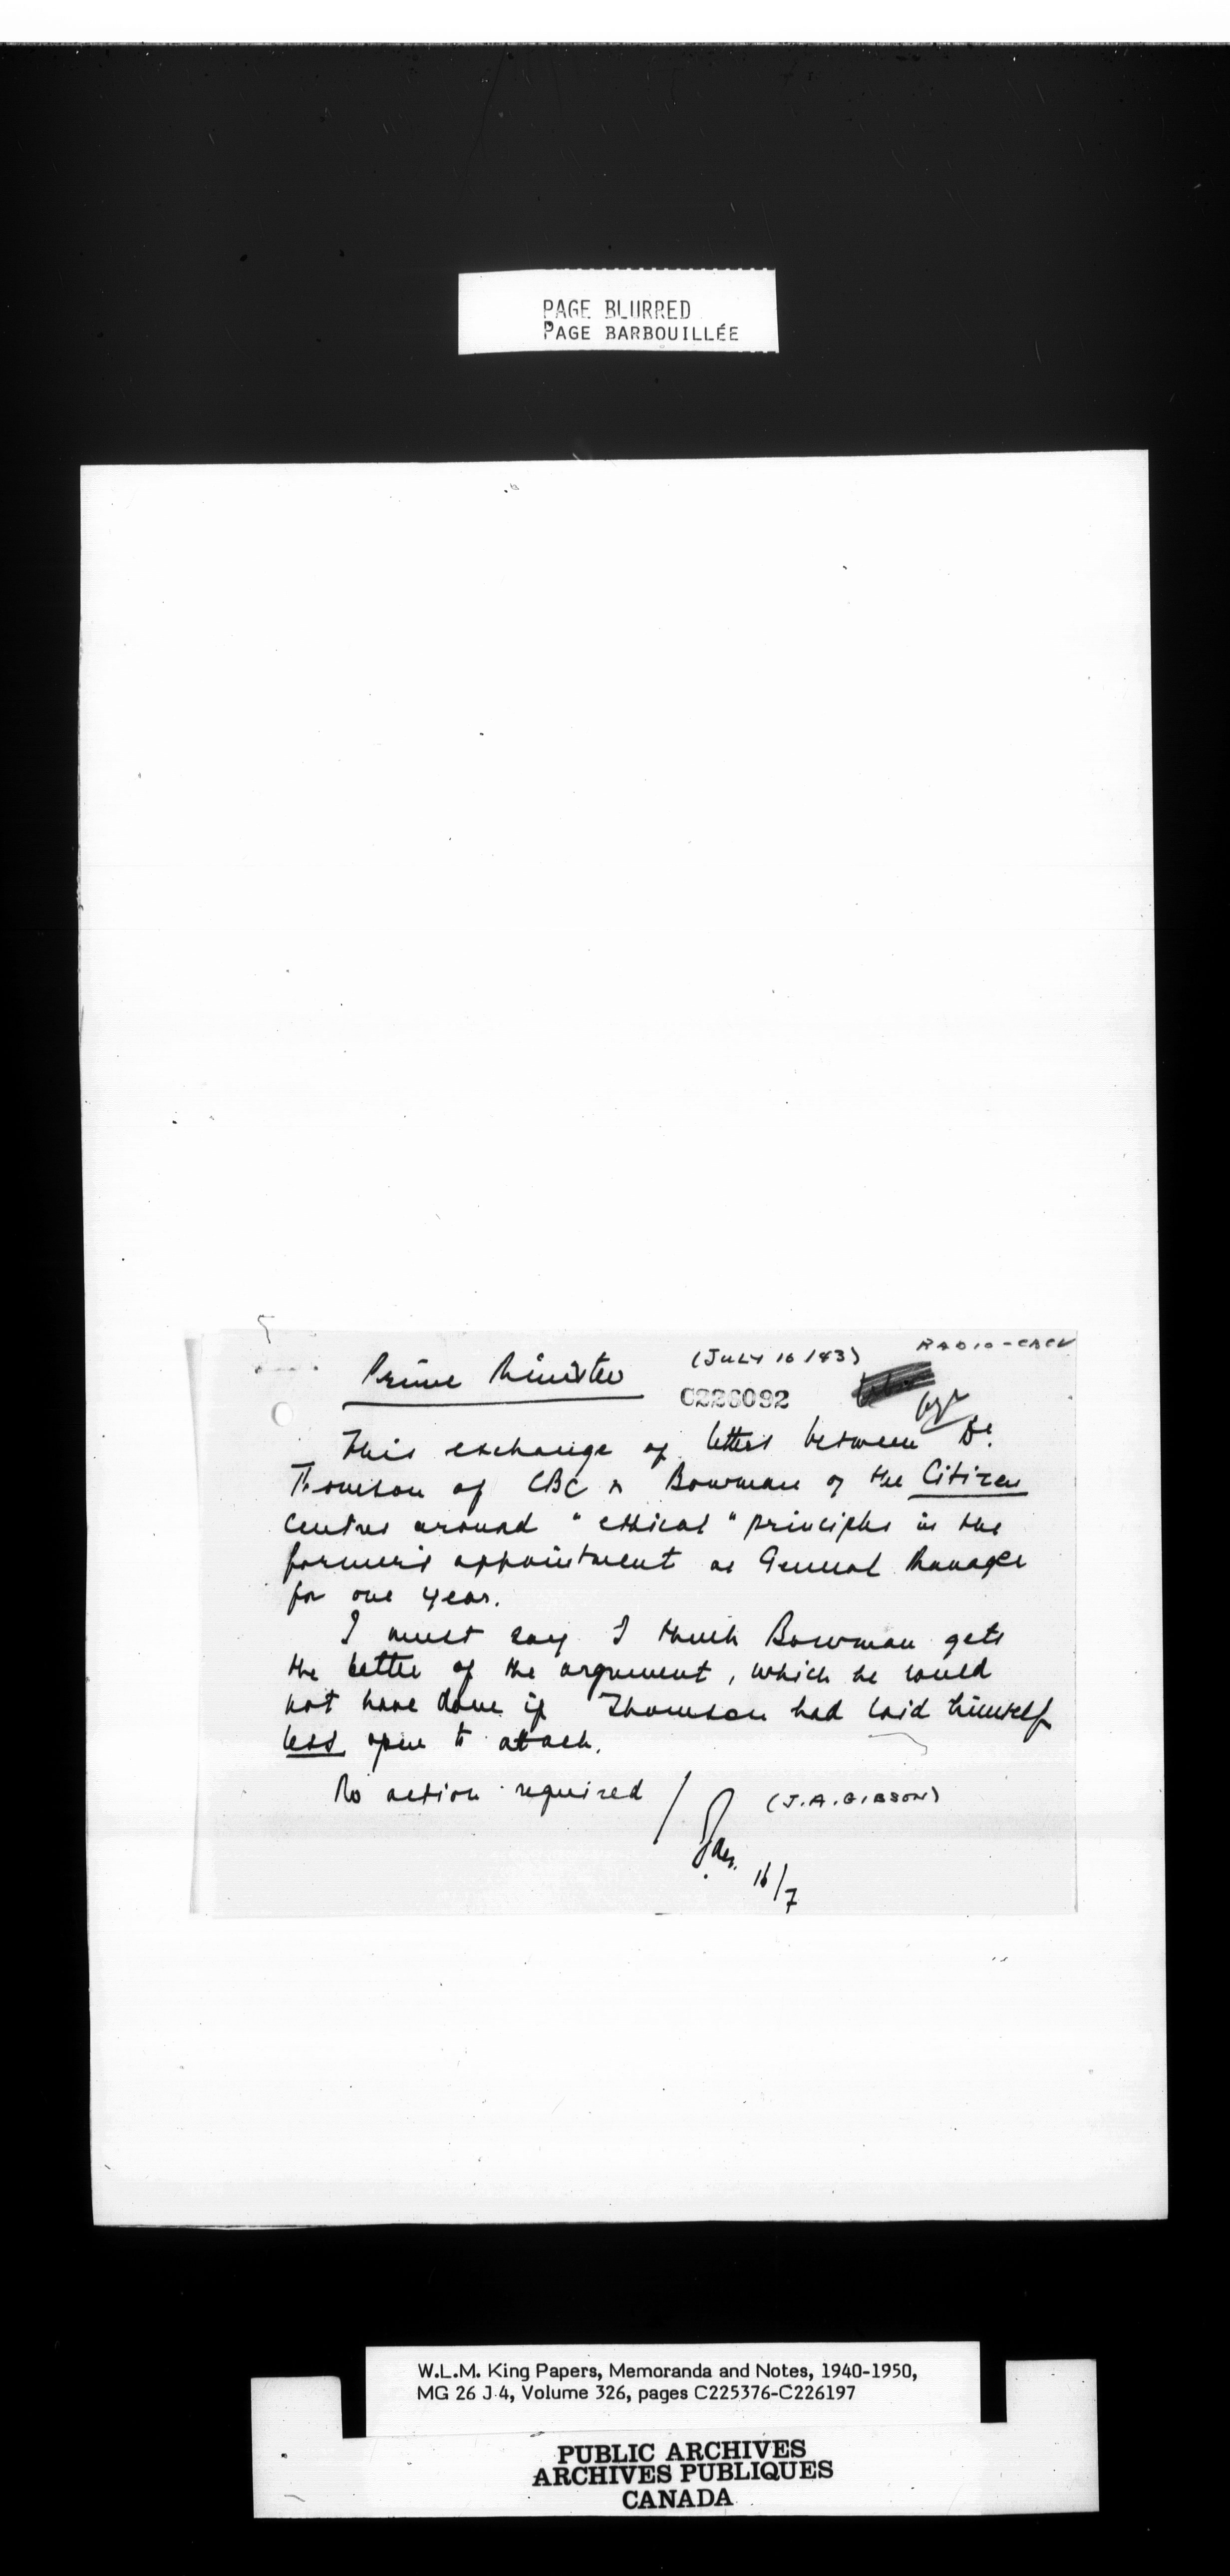 PAGE BLURRED
PAGE BARBOUILLÉE
RADIO-CBC
Prime Minister (JULY 16/43)
C226092
This exchange of letters between Dr.
Thomson of CBC & Bowman of the Citizen
centres around "ethical" principles in the
former's appointment as General Manager
for one year.
I must say I think Bowman gets
the better of the argument, which he could
not have done if Thomson had laid himself
less open to attack.
No action required / (J.A. GIBSON)
16/7
W.L.M. King Papers, Memoranda and Notes, 1940-1950,
MG 26 J 4, Volume 326, pages C225376-C226197
PUBLIC ARCHIVES
ARCHIVES PUBLIQUES
CANADA